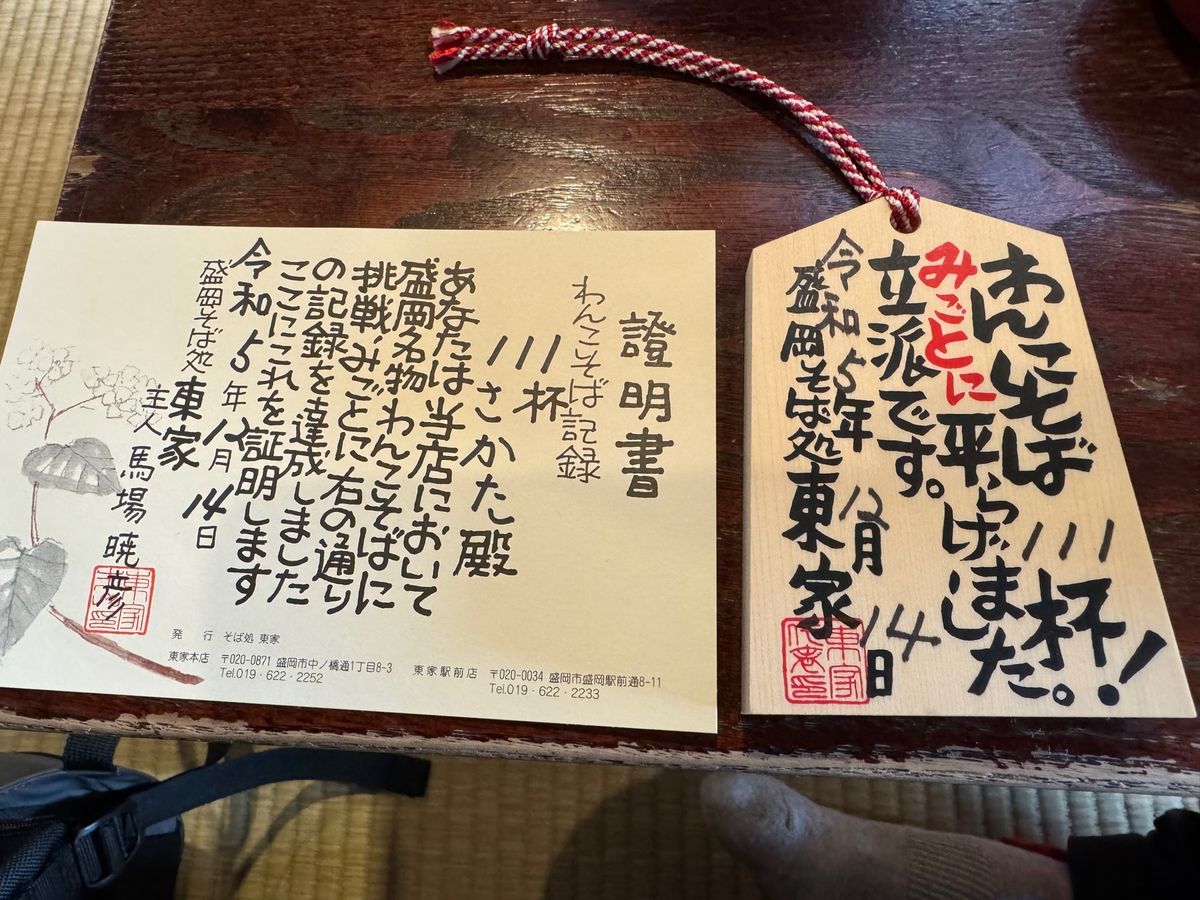 證明書
わんこそば記録
111杯
さかた殿
あなたは当店において
盛岡名物“わんこそばに
挑戦”みごとに右の通り
の記録を達成しました
ここにこれを証明します
令和5年12月14日
盛岡そば処 東家
主人 馬場暁彦
発 行 そば処 東家
東家本店 〒020-0871 盛岡市中ノ橋通1丁目8-3
Tel.019・622・2252
東家駅前店 〒020-0034 盛岡市盛岡駅前通8-11
Tel.019・622・2233
わんこそば111杯!
みごとに平らげました。
立派です。
令和5年12月14日
盛岡そば処東家